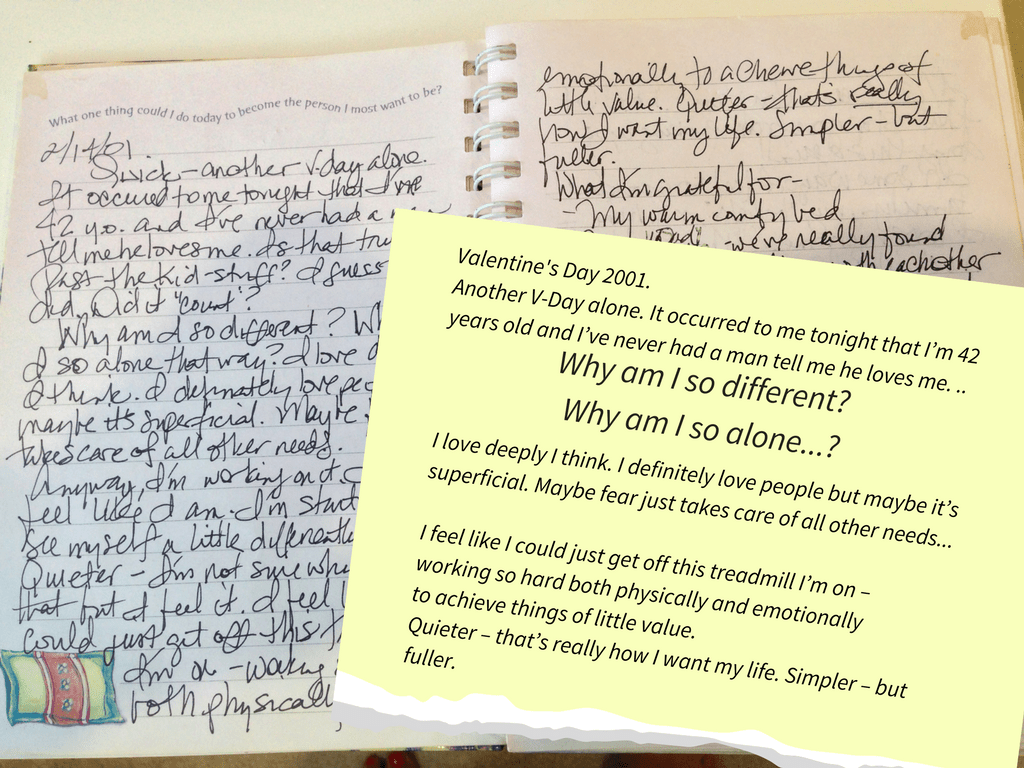 What one thing could I do today to become the person I most want to be?
2/14/01.
Quick - another V-day alone.
It occured to me tonight that I'm
42 y.o. and I've never had a man
tell me he loves me. Is that true
Past - the kid-stuff? I guess
did. Did it "count"?
Why am I so different? Wh
I so alone that way? I love d
I think. I definately love peo
maybe it's superficial. Maybe
takes care of all other needs.
Anyway, I'm working on it.
feel like I am. I'm start
see myself a little differently
Quieter - I'm not sure why
that but I feel it. I feel l
could just get off this t
I'm on - working
both physically
emotionally to acheive things of
little value. Quieter - that's really
how I want my life. Simpler - but
fuller.
What I'm grateful for -
- My warm comfy bed
- we've really found
with eachother
Valentine's Day 2001.
Another V-Day alone. It occurred to me tonight that I'm 42
years old and I've never had a man tell me he loves me. ..
Why am I so different?
Why am I so alone...?
I love deeply I think. I definitely love people but maybe it's
superficial. Maybe fear just takes care of all other needs...
I feel like I could just get off this treadmill I'm on –
working so hard both physically and emotionally
to achieve things of little value.
Quieter – that's really how I want my life. Simpler – but
fuller.